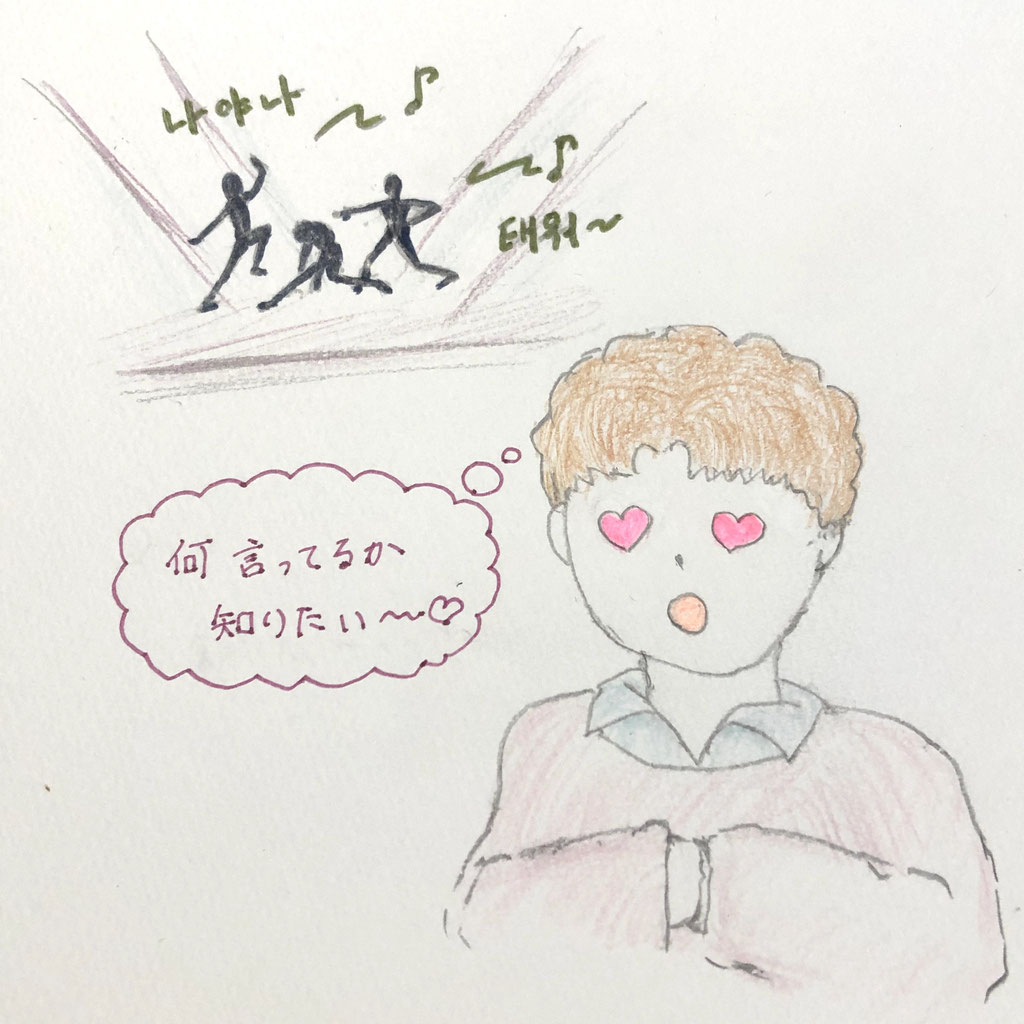 나야나 ~ ♪
~ ♪
태워~
何言ってるか
知りたい~♡